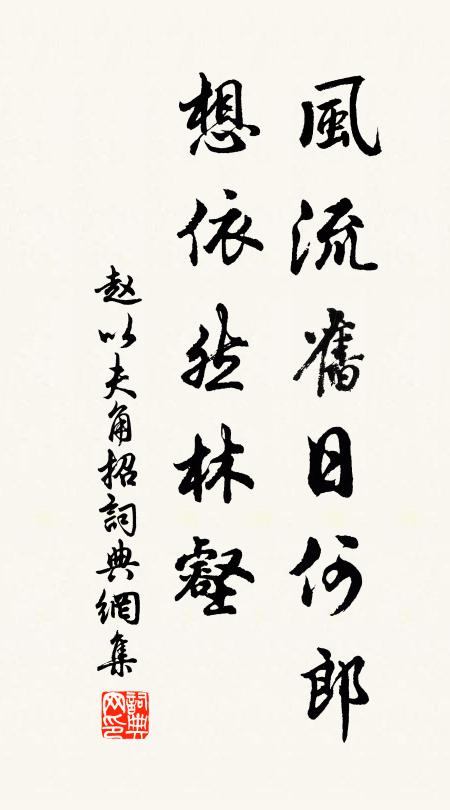 風流舊日何郎
想依然林壑
赵以夫角招詞典網集
詞典网印